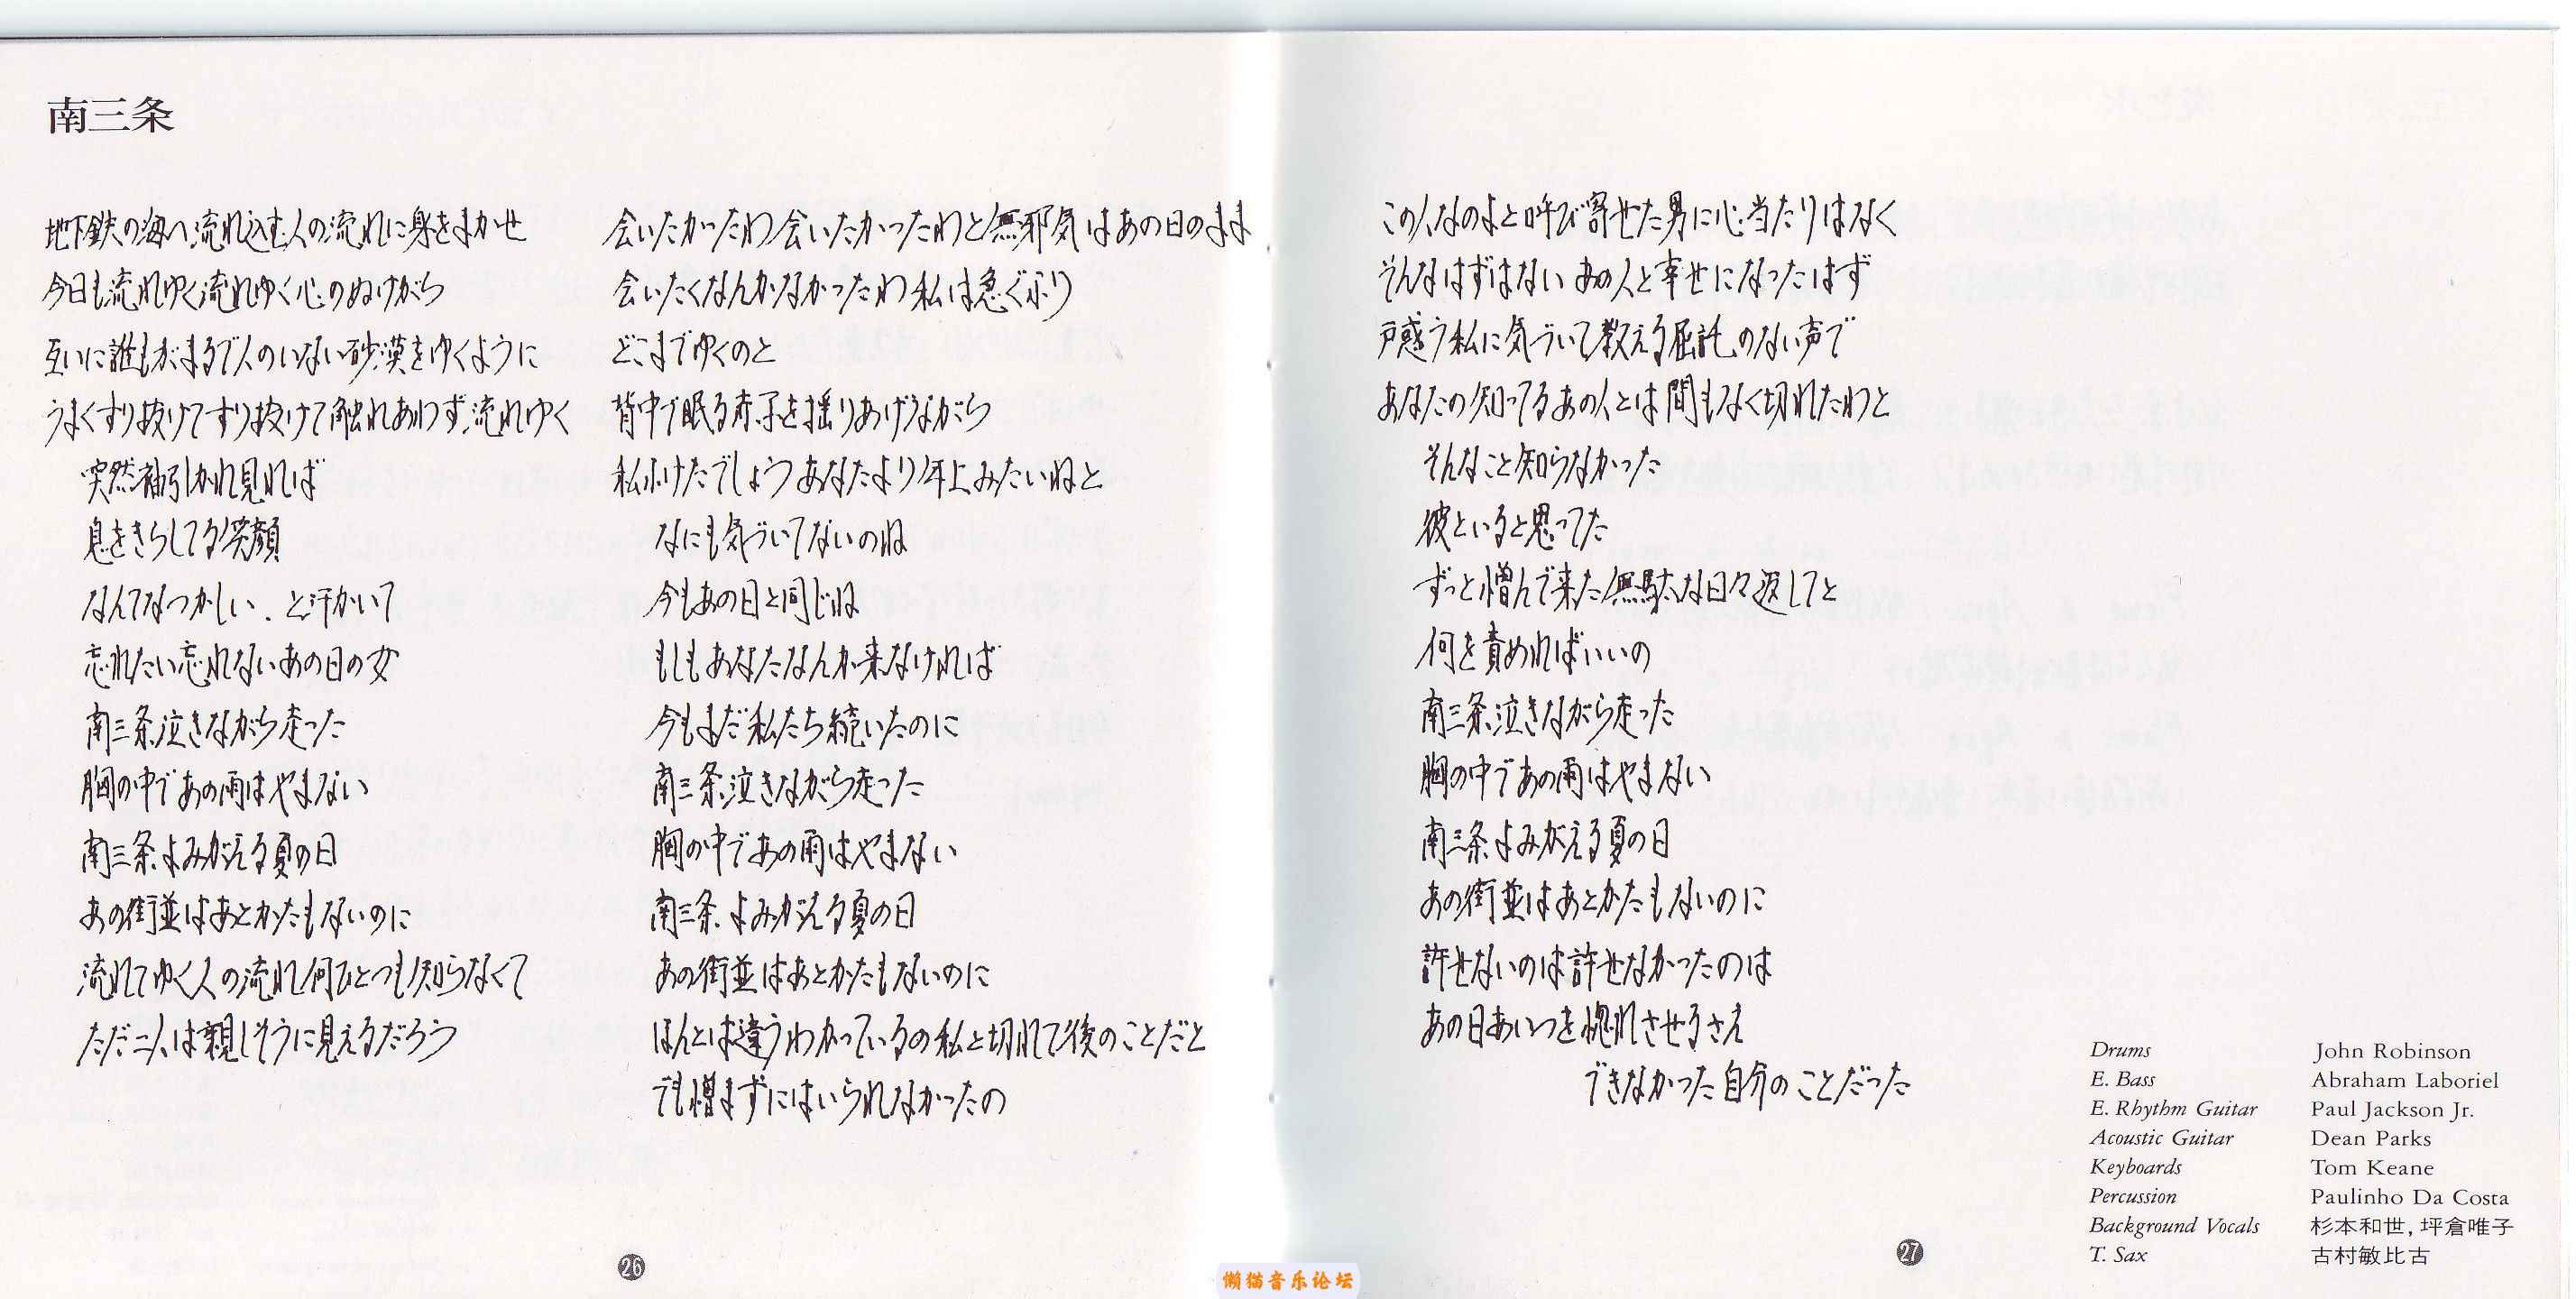 南三条
地下鉄の海へ流れ込む人の流れに身をまかせ
今日も流れゆく流れゆく心のぬけがら
互いに誰もがまるで人のいない砂漠をゆくように
うまくすり抜けてすり抜けて触れあわず流れゆく
突然袖引かれ見れば
息をきらしてる笑顔
なんてなつかしい、と汗かいて
忘れたい忘れないあの日の女
南三条泣きながら走った
胸の中であの雨はやまない
南三条よみがえる夏の日
あの街並はあとかたもないのに
流れてゆく人の流れ何ひとつも知らなくて
ただ二人は親しそうに見えるだろう
会いたかったわ会いたかったわと無邪気はあの日のまま
会いたくなんかなかったわ私は急ぐふり
どこまでゆくのと
背中で眠る赤子を揺りあげながら
私ふけたでしょう あなたより年上みたいねと
なにも気づいてないのね
今もあの日と同じね
もしもあなたなんか来なければ
今もまだ私たち続いたのに
南三条泣きながら走った
胸の中であの雨はやまない
南三条よみがえる夏の日
あの街並はあとかたもないのに
ほんとは違うわかっているの私と切れて後のことだと
でも憎まずにはいられなかったの
26
この人なのよと呼び寄せた男に心当たりはなく
そんなはずはない あの人と幸せになったはず
戸惑う私に気づいて教える屈託のない声で
あなたの知ってるあの人とは間もなく切れたわと
そんなこと知らなかった
彼といると思ってた
ずっと憎んで来た無駄な日々返してと
何を責めればいいの
南三条泣きながら走った
胸の中であの雨はやまない
南三条よみがえる夏の日
あの街並はあとかたもないのに
許せないのは許せなかったのは
あの日あいつを惚れさせるさえ
できなかった自分のことだった
Drums John Robinson
E. Bass Abraham Laboriel
E. Rhythm Guitar Paul Jackson Jr.
Acoustic Guitar Dean Parks
Keyboards Tom Keane
Percussion Paulinho Da Costa
Background Vocals 杉本和世, 坪倉唯子
T. Sax 古村敏比古
27
懒猫音乐论坛